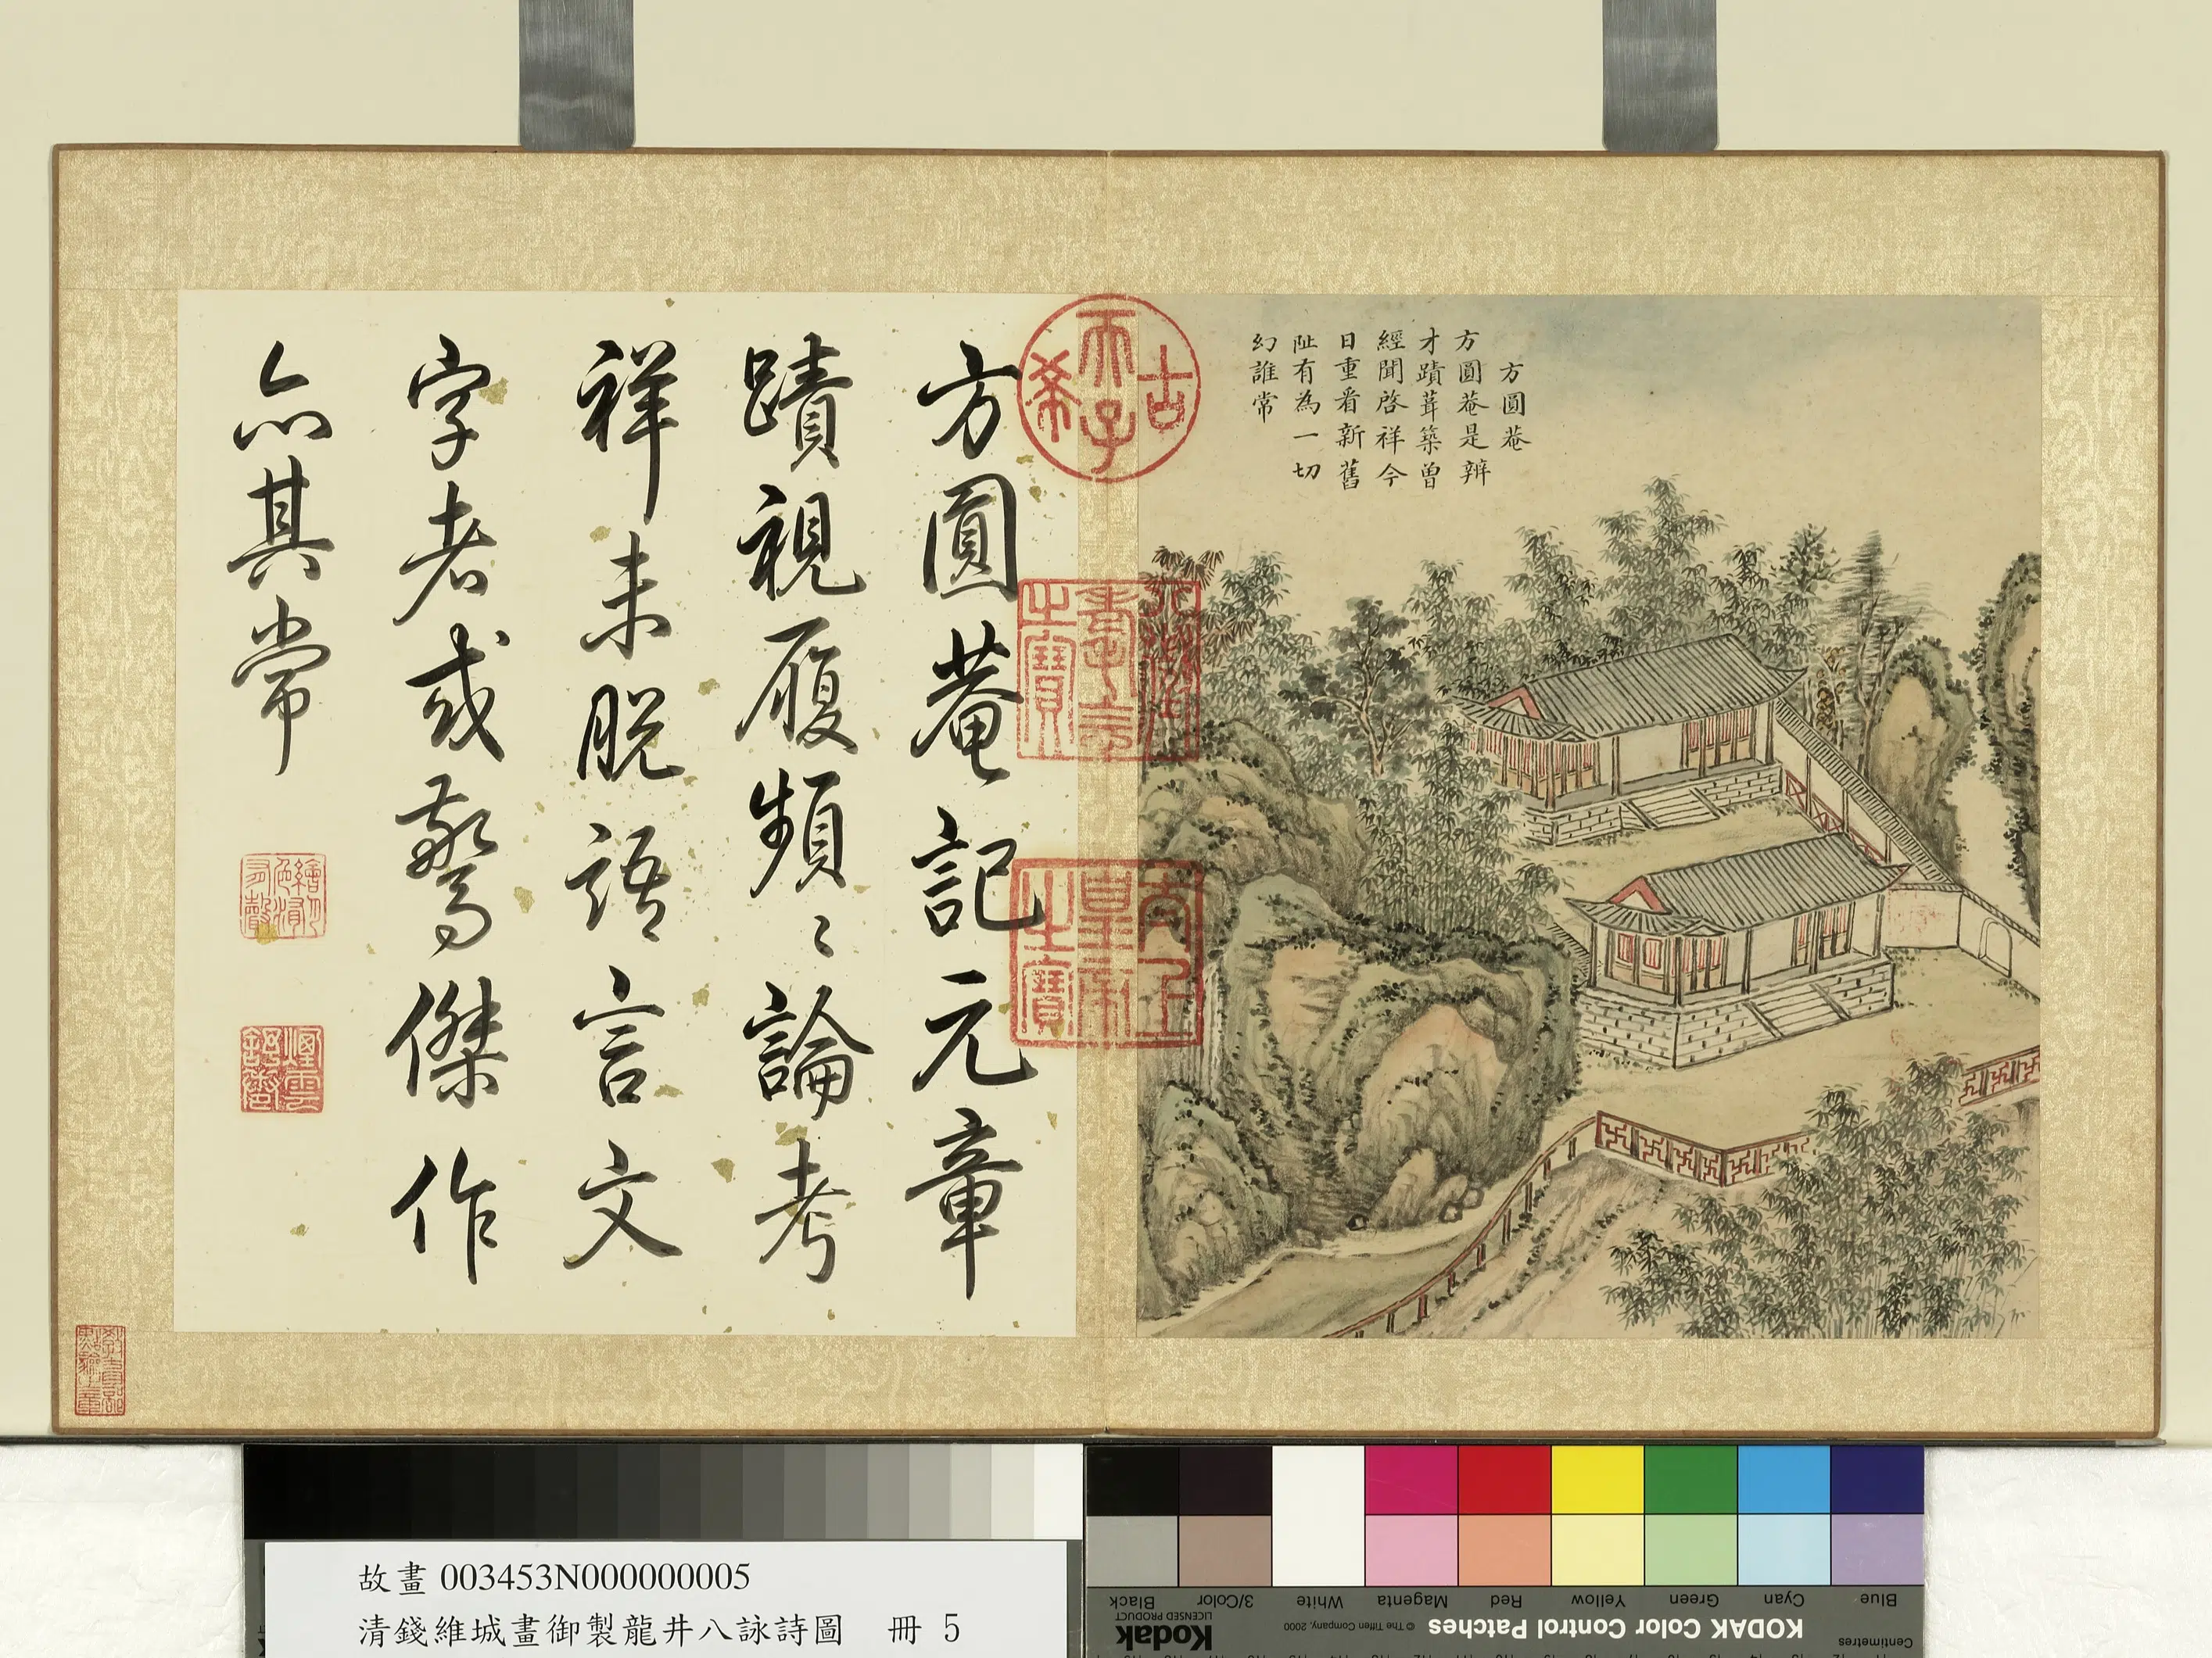 方圓菴
方圓菴是辨
才蹟葺築曾
經聞啓祥今
日重看新舊
阯有為一切
幻誰常
古希天子
八徵耄念之寶
太上皇帝之寶
方圓菴記元章
蹟視履頻〻論考
祥未脫語言文
字者或驚傑作
亦其常
故畫 003453N000000005
清錢維城畫御製龍井八詠詩圖 冊 5
KODAK Color Control Patches
Kodak
LICENSED PRODUCT
© The Tiffen Company, 2000
Centimetres
Blue
Cyan
Green
Yellow
Red
Magenta
White
3/Color
Black